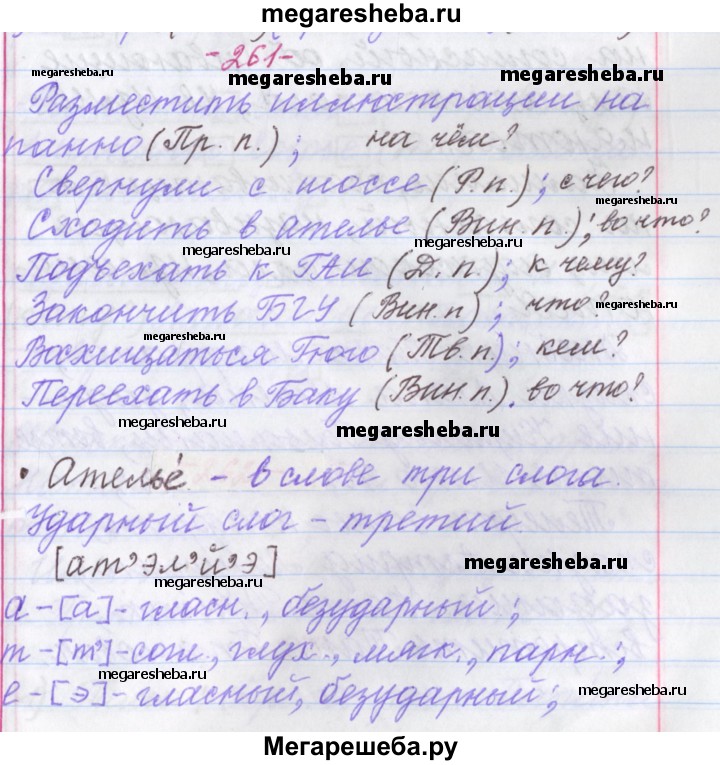 megaresheba.ru
-261-
megaresheba.ru megaresheba.ru
Разместить иллюстрации на
панно (Пр. п.); на чём?
megaresheba.ru
Свернули с шоссе (Р.п.); с чего?
megaresheba.ru
Сходить в ателье (Вин. п.); во что?
megaresheba.ru megaresheba.ru
Подъехать к ГАИ (Д. п.); к чему?
Закончить БГУ (Вин. п); что?
megaresheba.ru
megaresheba.ru
Восхищаться Гюго (Тв. п.); кем?
Переехать в Баку (Вин. п.). во что?
megaresheba.ru megaresheba.ru
• Ателье́ - в слове три слога.
Ударный слог - третий.
[ат’эл’й’э] megaresheba.ru
megaresheba.ru
а - [а] - гласн., безударный;
т - [т’] - согл., глух., мягк., парн.;
megaresheba.ru
е - [э] - гласный, безударный;
megaresheba.ru
Мегарешеба.ру